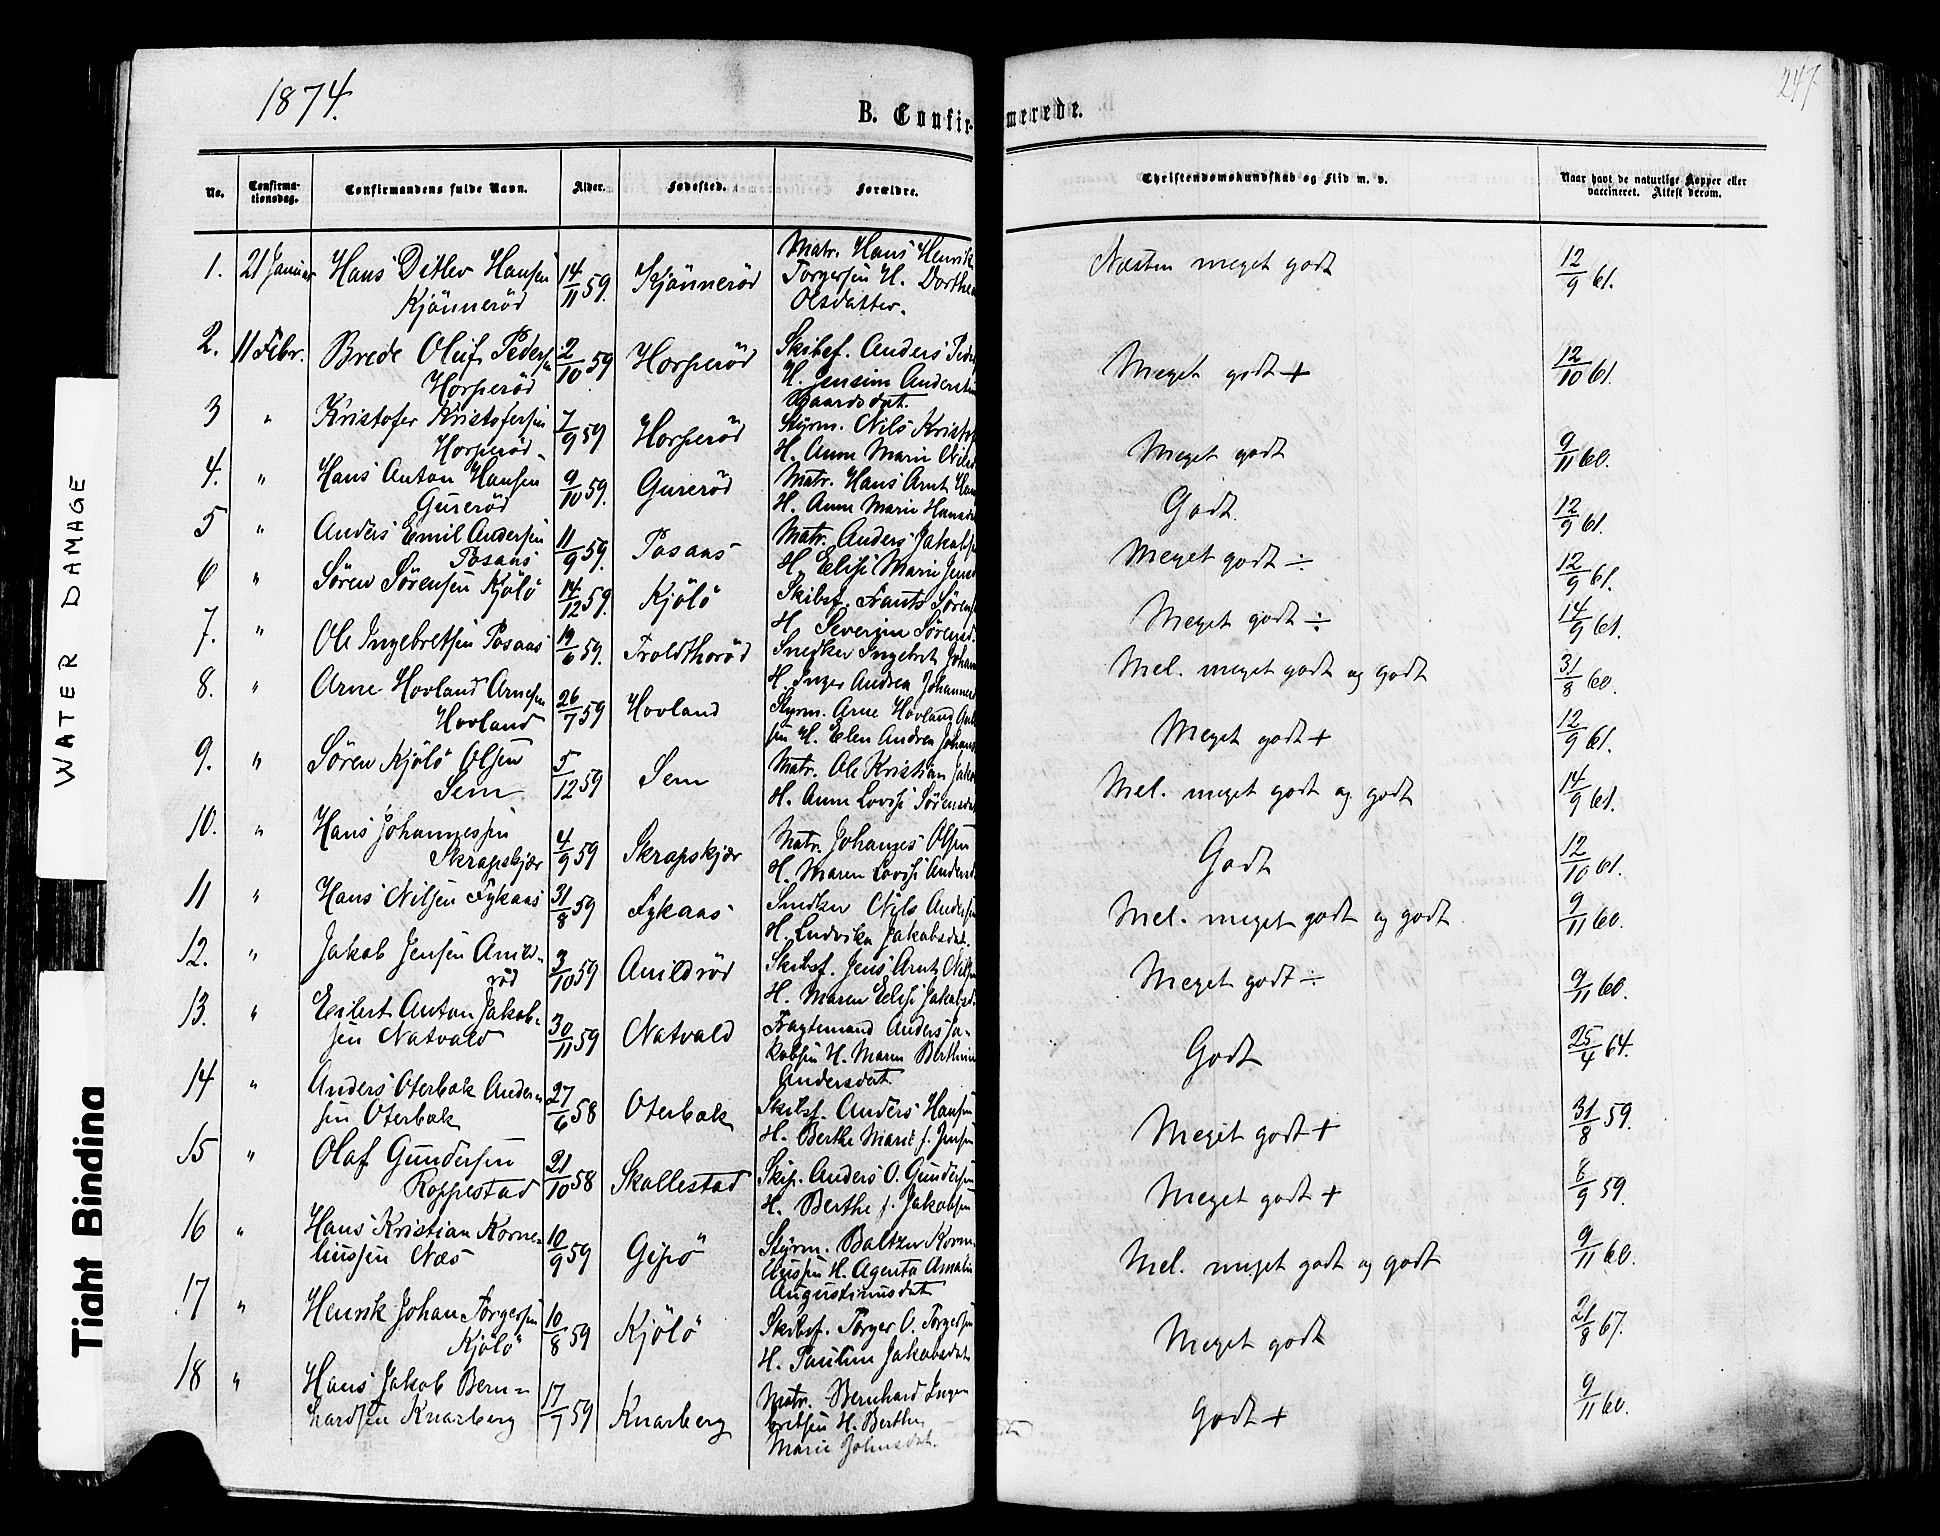 WATER DAMAGE
Tight Binding
1874.
247
B. Confirmerede.
No. Confirmationsdag. Confirmandens fulde Navn. Alder. Fødested. Forældre. Christendomskundskab og Flid m. v. Naar havt de naturlige Kopper eller vaccineret. Attest derom.
1. 21 Januar Hans Ditlev Hansen Kjönneröd 14/11 59. Kjönneröd Matr. Hans Henrik Torgersen H. Dorthea Olsdatter. Næsten meget godt 12/9 61.
2. 11 Febr. Brede Oluf Pedersen Horperöd 2/10 59 Horperöd Skibsf. Anders Peder H. Jensine Anderstine Baardsdat. Meget godt + 12/10 61.
3 " Kristofer Kristofersen Horperöd 7/9 59 Horperöd Styrm. Nils Kristof H. Anne Marie Nilsd Meget godt 9/11 60.
4. " Hans Anton Hansen Gureröd 9/10 59. Gureröd Matr. Hans Arnt Han H. Anne Marie Hansd Godt. 12/9 61.
5 " Anders Emil Andersen Posaas 11/9 59. Posaas Matr. Anders Jakobsen H. Elisi Marie Jensd Meget godt ÷ 12/9 61.
6 " Sören Sörensen Kjölö 14/12 59. Kjölö Skibsf. Frants Sörens H. Severine Sörensd. Meget godt ÷ 14/9 61.
7. " Ole Ingebretsen Posaas 19/6 59. Troldthoröd Snedker Ingebret Johan H. Inger Andrea Johannesd Mel. meget godt og godt 31/8 60.
8. " Arne Hovland Arnesen Hovland 26/7 59 Hovland Styrm. Arne Hovland sen H. Elen Andrea Johans Meget godt + 12/9 61.
9. " Sören Kjölö Olsen Sem 5/12 59 Sem Matr. Ole Kristian Jako H. Anne Lovise Sörensdat Mel. meget godt og godt 14/9 61.
10. " Hans Johannessen Skrapskjær 4/9 59 Skrapskjær Matr. Johannes Olsen H. Maren Lovise Andersd Godt 12/10 61.
11 " Hans Nilsen Fykaas 31/8 59 Fykaas Snedker Nils Andersen H. Ludvika Jakobsdat. Mel. meget godt og godt 9/11 60.
12. " Jakob Jensen Amildröd 3/10 59 Amildröd Skibsf. Jens Arnt Nilsen H. Maren Elisi Jakobsd. Meget godt ÷ 9/11 60.
13. " Eilert Anton Jakobsen Natvald 30/11 59 Natvald Fragtemand Anders Jakobsen H. Maren Berthine Andersdat Godt 25/4 64.
14 " Anders Oterbæk Andersen Oterbæk 27/6 58 Oterbæk Skibsf. Anders Hansen H. Berthe Marie f. Jensen Meget godt + 31/8 59.
15 " Olaf Gundersen Roppestad 21/10 58 Skallestad Skip. Anders O. Gundersen H. Berthe f. Jakobsen Meget godt + 8/9 59.
16 " Hans Kristian Korneliussen Næs 10/9 59 Gipö Styrm. Baltzer Korneliussen H. Agenta Amalie Augustinusdat Mel. meget godt og godt 9/11 60.
17 " Henrik Johan Torgersen Kjölö 10/8 59 Kjölö Skibsf. Torger O. Torgersen H. Pauline Jakobsdat Meget godt 21/8 67.
18 " Hans Jakob Bernhardsen Knarberg 17/7 59 Knarberg Matr. Bernhard Ingebretsen H. Berthe Marie Johnsdat. Godt + 9/11 60.